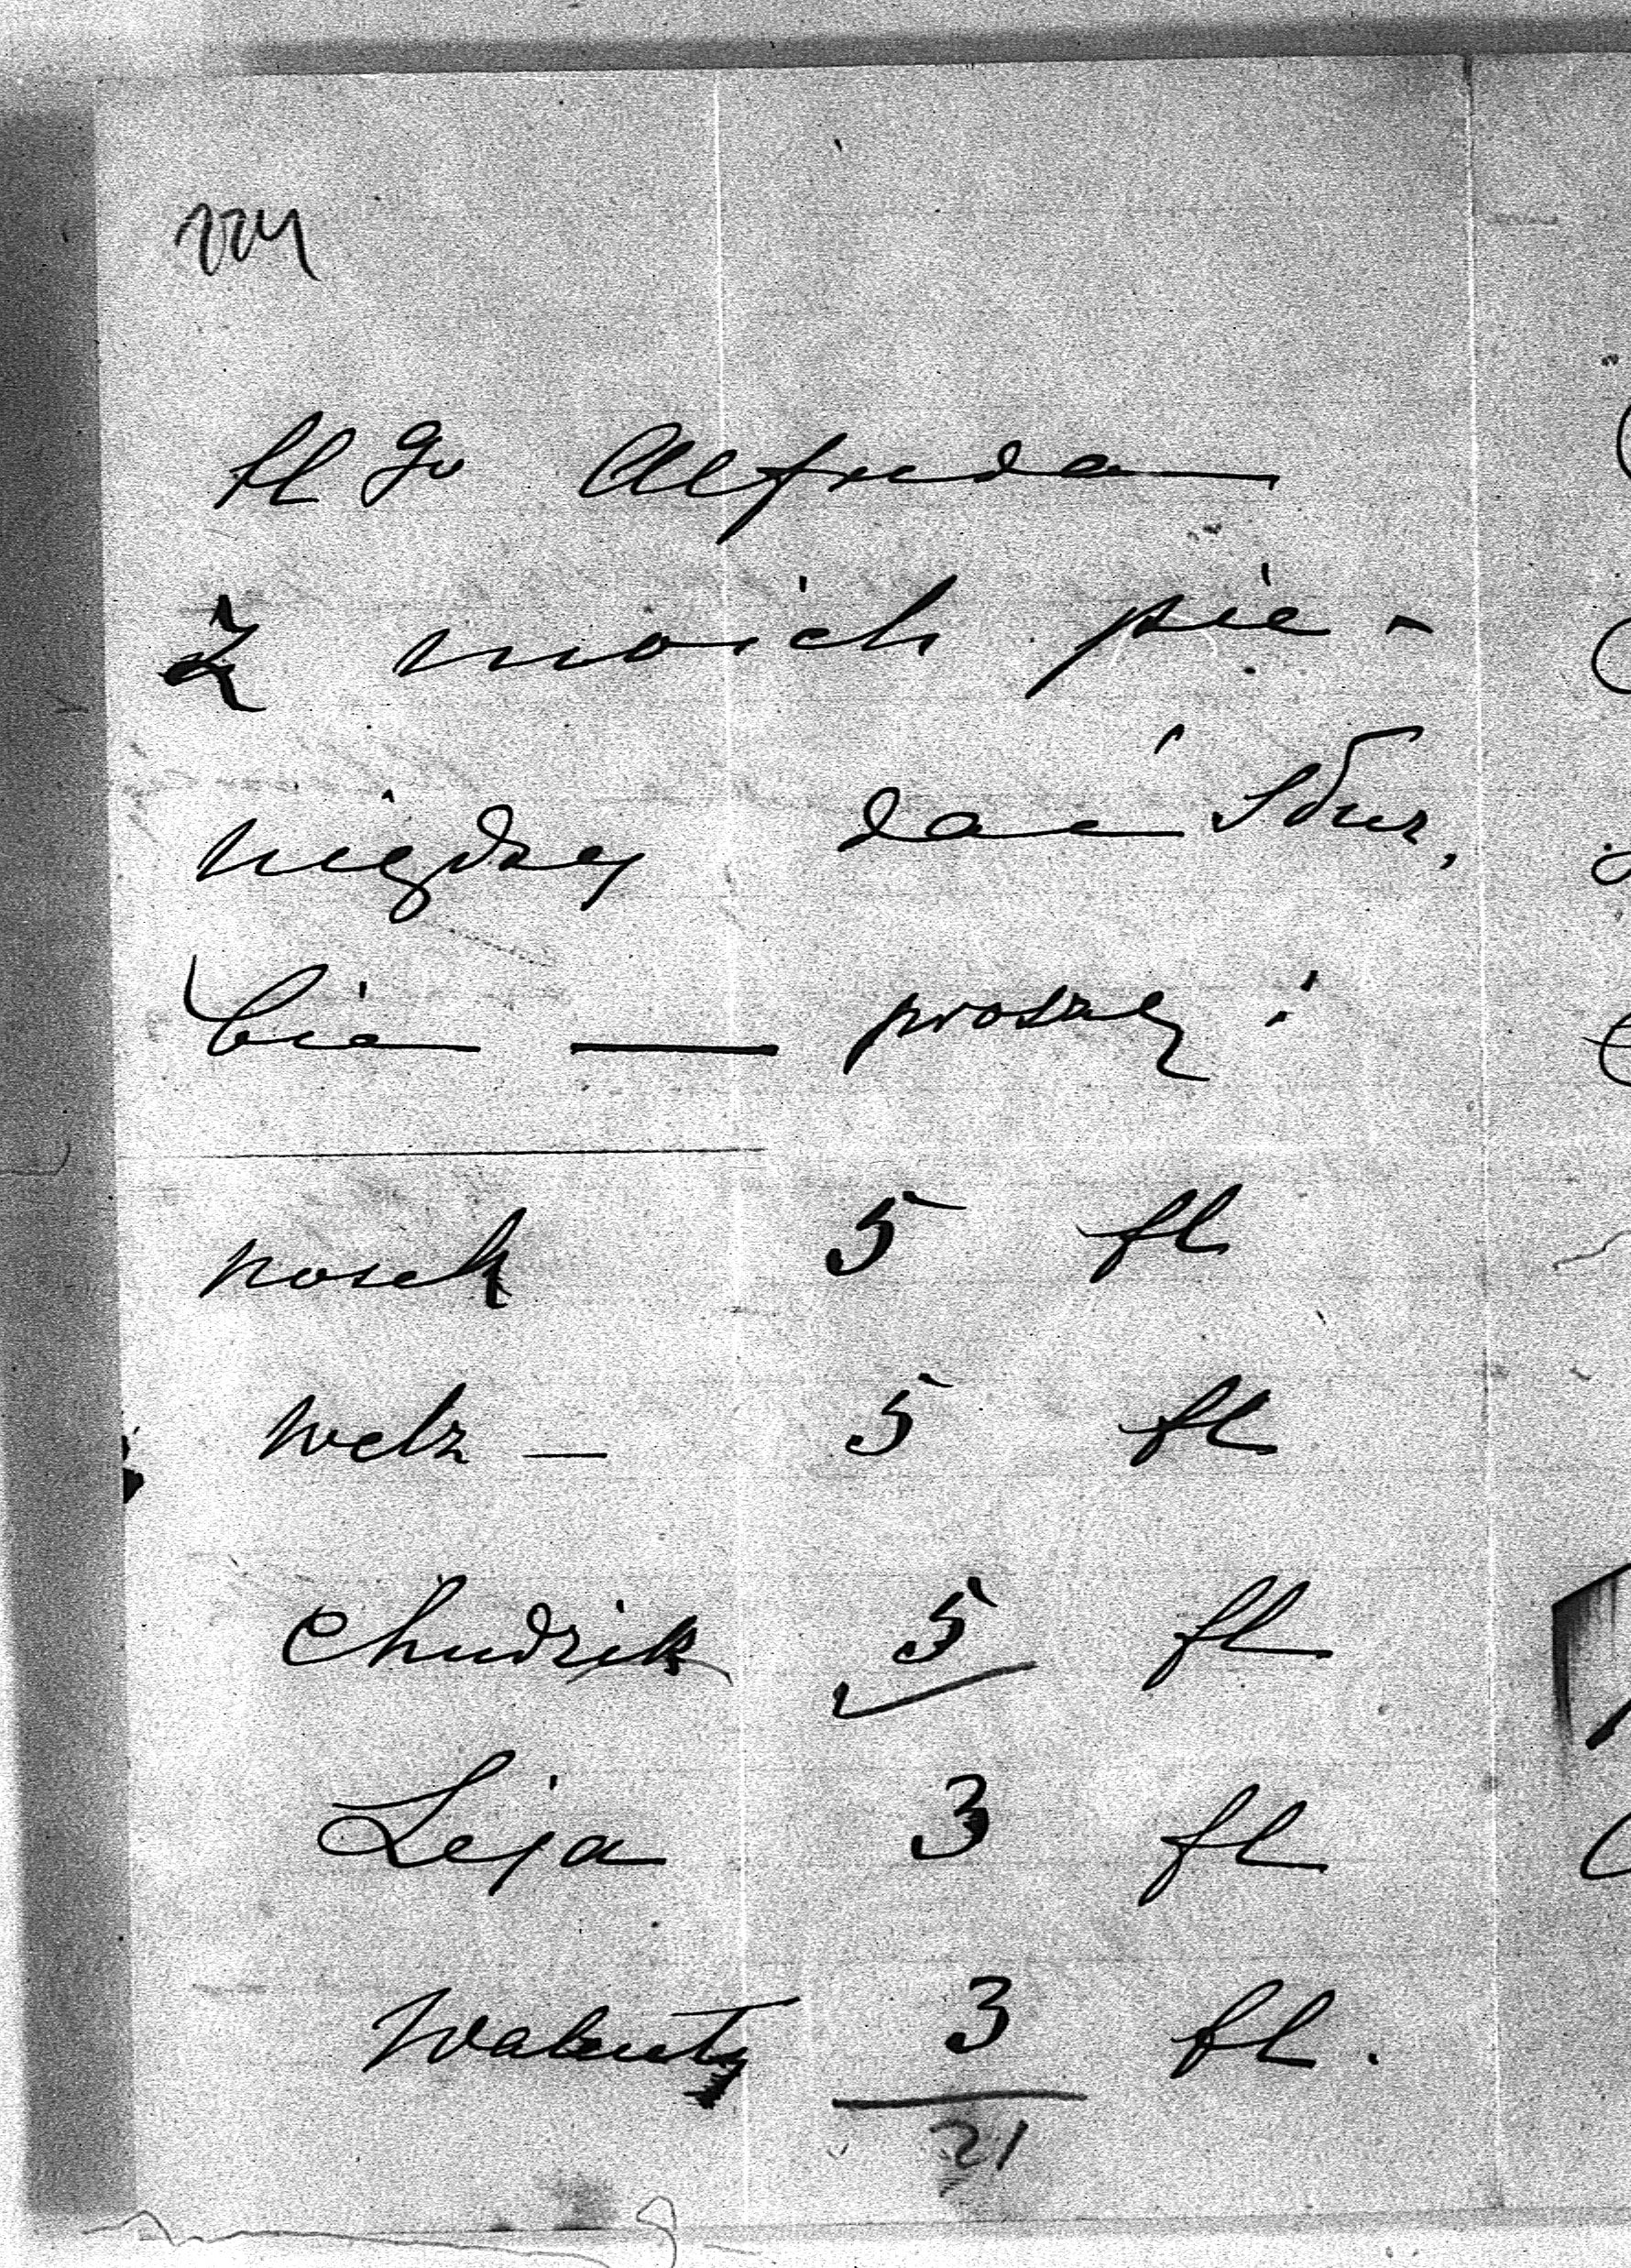 224
Hgo Alfreda
Z moich pie-
niędzy dać Służ,
bie — proszę :
nosek 5 fl
Welz — 5 fl
Chudzik 5 fl
Leja 3 fl
Walenty 3 fl.
21